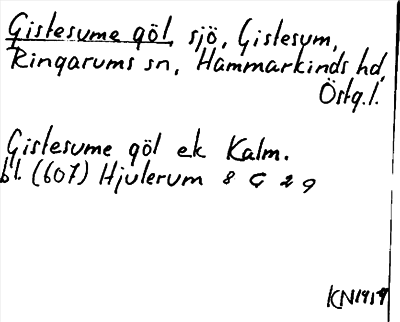 Gistesume göl, sjö, Gistesum,
Ringarums sn, Hammarkinds hd,
Östg.l.
Gistesume göl ek Kalm.
bl. (607) Hjulerum 8 G 2 g
KN1919